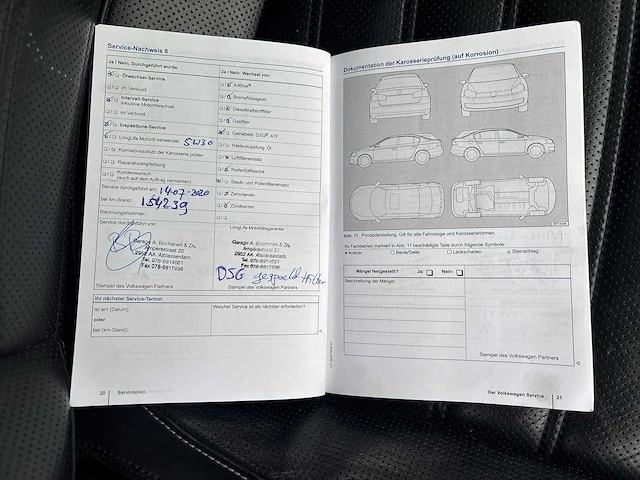 Service-Nachweis 8
Ja / Nein, Durchgeführt wurde:
Ölwechsel-Service
im Verbund
Intervall-Service
inklusive Motorölwechsel
im Verbund
Inspektions-Service
LongLife Motoröl verwendet 5W30
Korrosionsschutz der Karosserie prüfen
Reparaturempfehlung
Kundenwunsch
(auch auf dem Auftrag vermerken)
Service durchgeführt am: 14-07-2020
bei km-Stand: 154239
Rechnungsnummer:
Service durchgeführt von:
Garage A. Bochanen & Zn.
Ampèrestraat 20
2952 AA Alblasserdam
Tel. 078-6914661
Fax 078-6917098
Stempel des Volkswagen Partners
Ja / Nein, Wechsel von:
AdBlue®
Bremsflüssigkeit
Dieselkraftstofffilter
Gasfilter
Getriebeöl: DSG®, ATF
Haldexkupplung: Öl
Luftfiltereinsatz
Reifenfüllflasche
Staub- und Pollenfiltereinsatz
Zahnriemen
Zündkerzen
LongLife Mobilitätsgarantie
Garage A. Bochanen & Zn.
2952 AA Alblasserdam
Tel. 078-6914661
Fax 078-6917098
DSG gespoeld + filter
Stempel des Volkswagen Partners
Ihr nächster Service-Termin
ist am (Datum):
oder
bei (km-Stand):
Welcher Service ist als nächster erforderlich?
20 Serviceplan
Dokumentation der Karosserieprüfung (auf Korrosion)
Abb. 11 Prinzipdarstellung. Gilt für alle Fahrzeuge und Karosserieformen.
Ihr Fachbetrieb markiert in Abb. 11 beschädigte Teile durch folgende Symbole:
× Kratzer ○ Beule/Delle □ Lackschaden △ Steinschlag
Mängel festgestellt? Ja: Nein:
Beschreibung der Mängel:
Stempel des Volkswagen Partners
Der Volkswagen Service 21